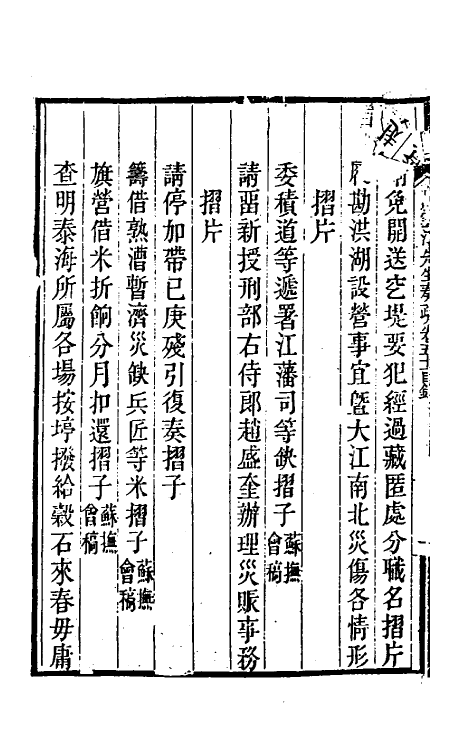 免開送空堤要犯經過藏匿處分職名摺片
勘洪湖設營事宜曁大江南北災傷各情形
摺片
委積道等遞署江藩司等缺摺子蘇撫會稿
請畱新授刑部右侍郎趙盛奎辦理災賑事務
摺片
請停加帶已庚殘引復奏摺子
籌借熟漕暫濟災缺兵匠等米摺子蘇撫會稿
旗營借米折餉分月扣還摺子蘇撫會稿
查明泰海所屬各場按埻撥給穀石來春毋庸